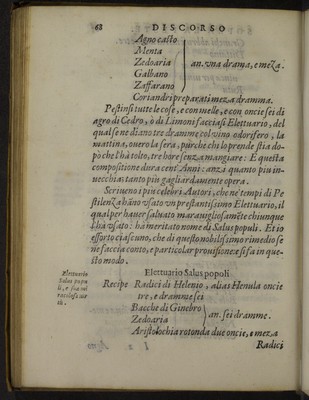 68 DISCORSO
Agno casto
Menta
Zedoaria
an. vna drama, e meza.
Galbano
Zaffarano
Coriandri preparati meza dramma.
Pestinsi tutte le cose, e con melle, e con oncie sei di
agro di Cedro, ò di Limoni facciasi Elettuario, del
qual se ne diano tre dramme col vino odorifero, la
mattina, ouero la sera, purche chi lo prende stia do-
pò che l'hà tolto, tre hore senza mangiare: E questa
compositione durera cent'Anni: anzi quanto piu in-
uecchia: tanto più gagliardamente opera.
Scriuono i più celebri Autori, che ne' tempi di Pe
stilenza hãno vsato vn prestantissimo Elettuario, il
qual per hauer saluato marauigliosamẽte chiunque
l'hà vsato: hà meritato nome di Salus populi. Et io
essorto ciascuno, che di questo nobilissimo rimedio se
ne faccia conto, e particolar prouisione: e si fa in que-
sto modo.
Elettuario Salus popoli
Elettuario
Salus popu
li, e sua mi
racolosa vir
tù.
Recipe Radici di Helenio, alias Henula oncie
tre, e dramme sei
Bacche di Ginebro
an. sei dramme.
Zedoaria
Aristolochia rotonda due oncie, e meza
Radici